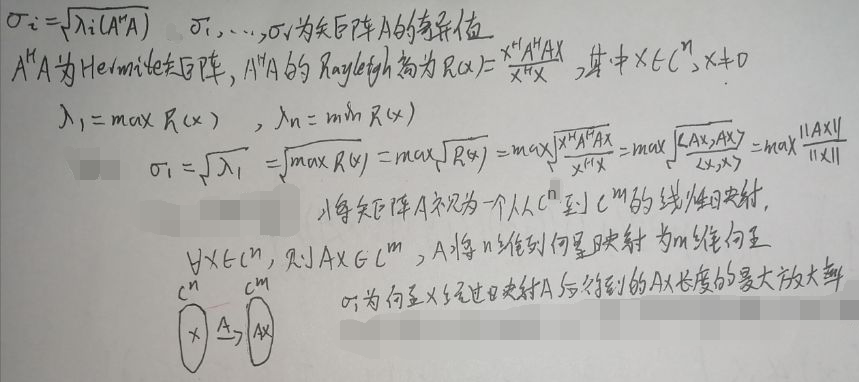 σi=√λi(AᴴA)  σ1,…,σr为矩阵A的奇异值
AᴴA为Hermite矩阵, AᴴA的Rayleigh商为R(x)=xᴴAᴴAx/xᴴx, 其中x∈Cⁿ, x≠0
λ1=max R(x) , λn=min R(x)
σ1=√λ1 =√max R(x)=max√R(x)=max√xᴴAᴴAx/xᴴx=max√<Ax,Ax>/<x,x>=max ||Ax||/||x||
将矩阵A视为一个从Cⁿ到Cᵐ的线性映射,
∀x∈Cⁿ, 则Ax∈Cᵐ, A将n维向量映射为m维向量
Cⁿ Cᵐ
σ1为向量x经过映射A后得到的Ax长度的最大放大率
x A→ Ax